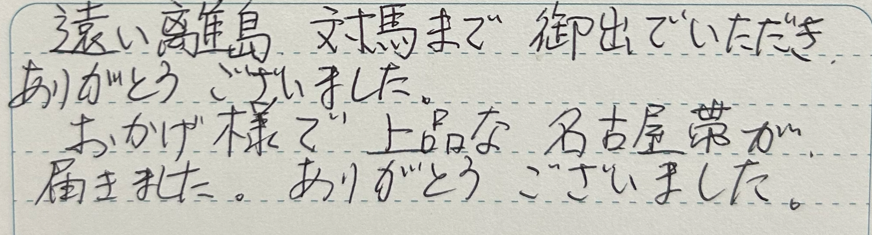 遠い離島 対馬まで 御出でいただき
ありがとう ございました。
おかげ様で 上品な 名古屋帯が
届きました。ありがとう ございました。